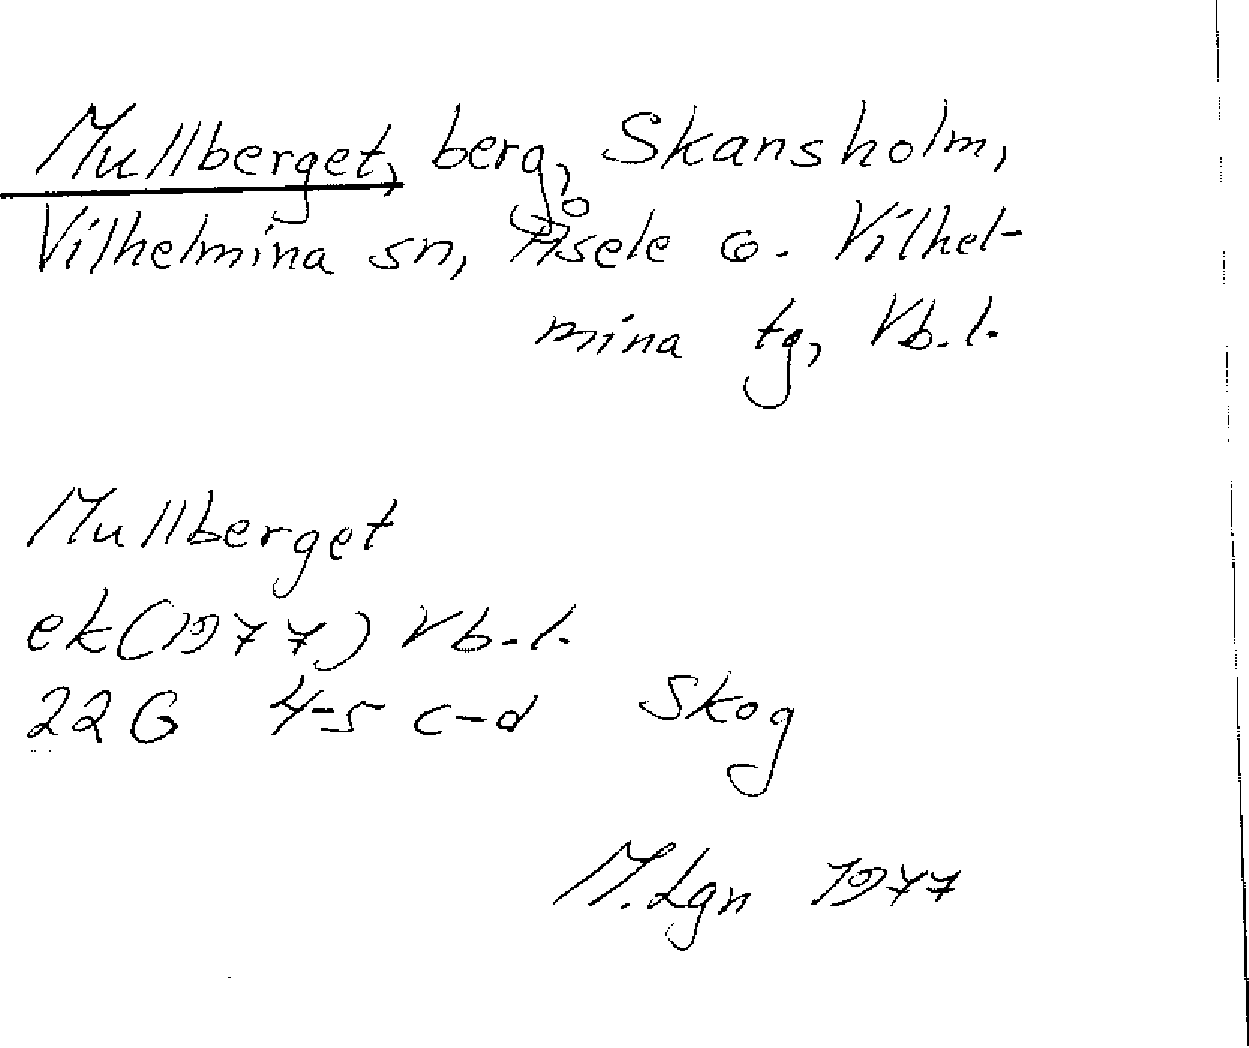 Mullberget, berg, Skansholm,
Vilhelmina sn, Åsele o. Vilhel-
mina tg, Vb. l.
Mullberget
ek (1977) Vb. l.
22 G 4-5 c-d Skog
M. Lgn 1977